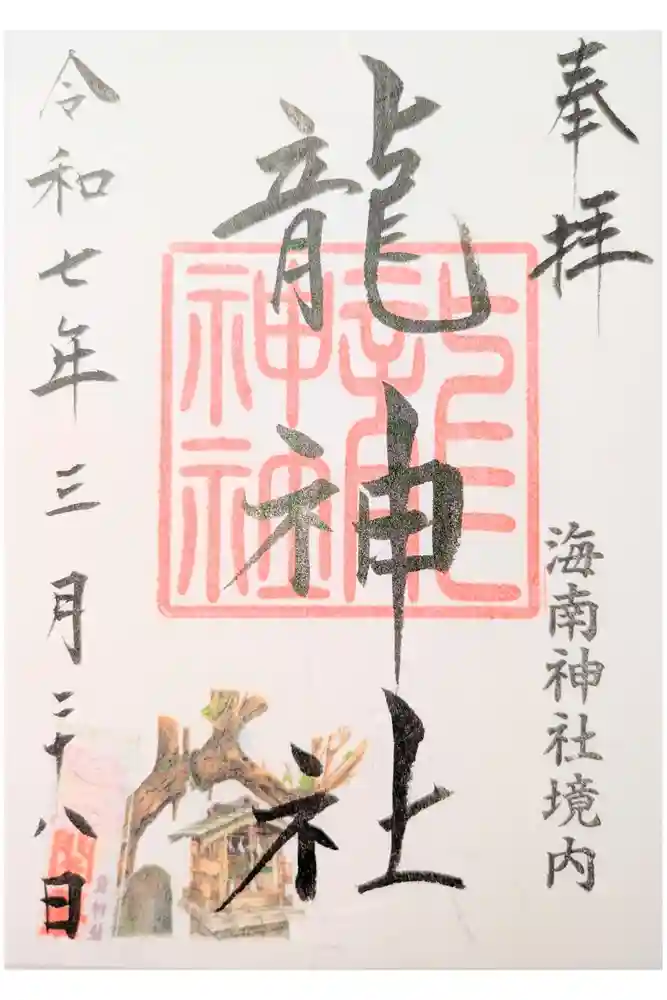 奉拝
海南神社境内
龍神社
龍神社
令和七年三月二十八日